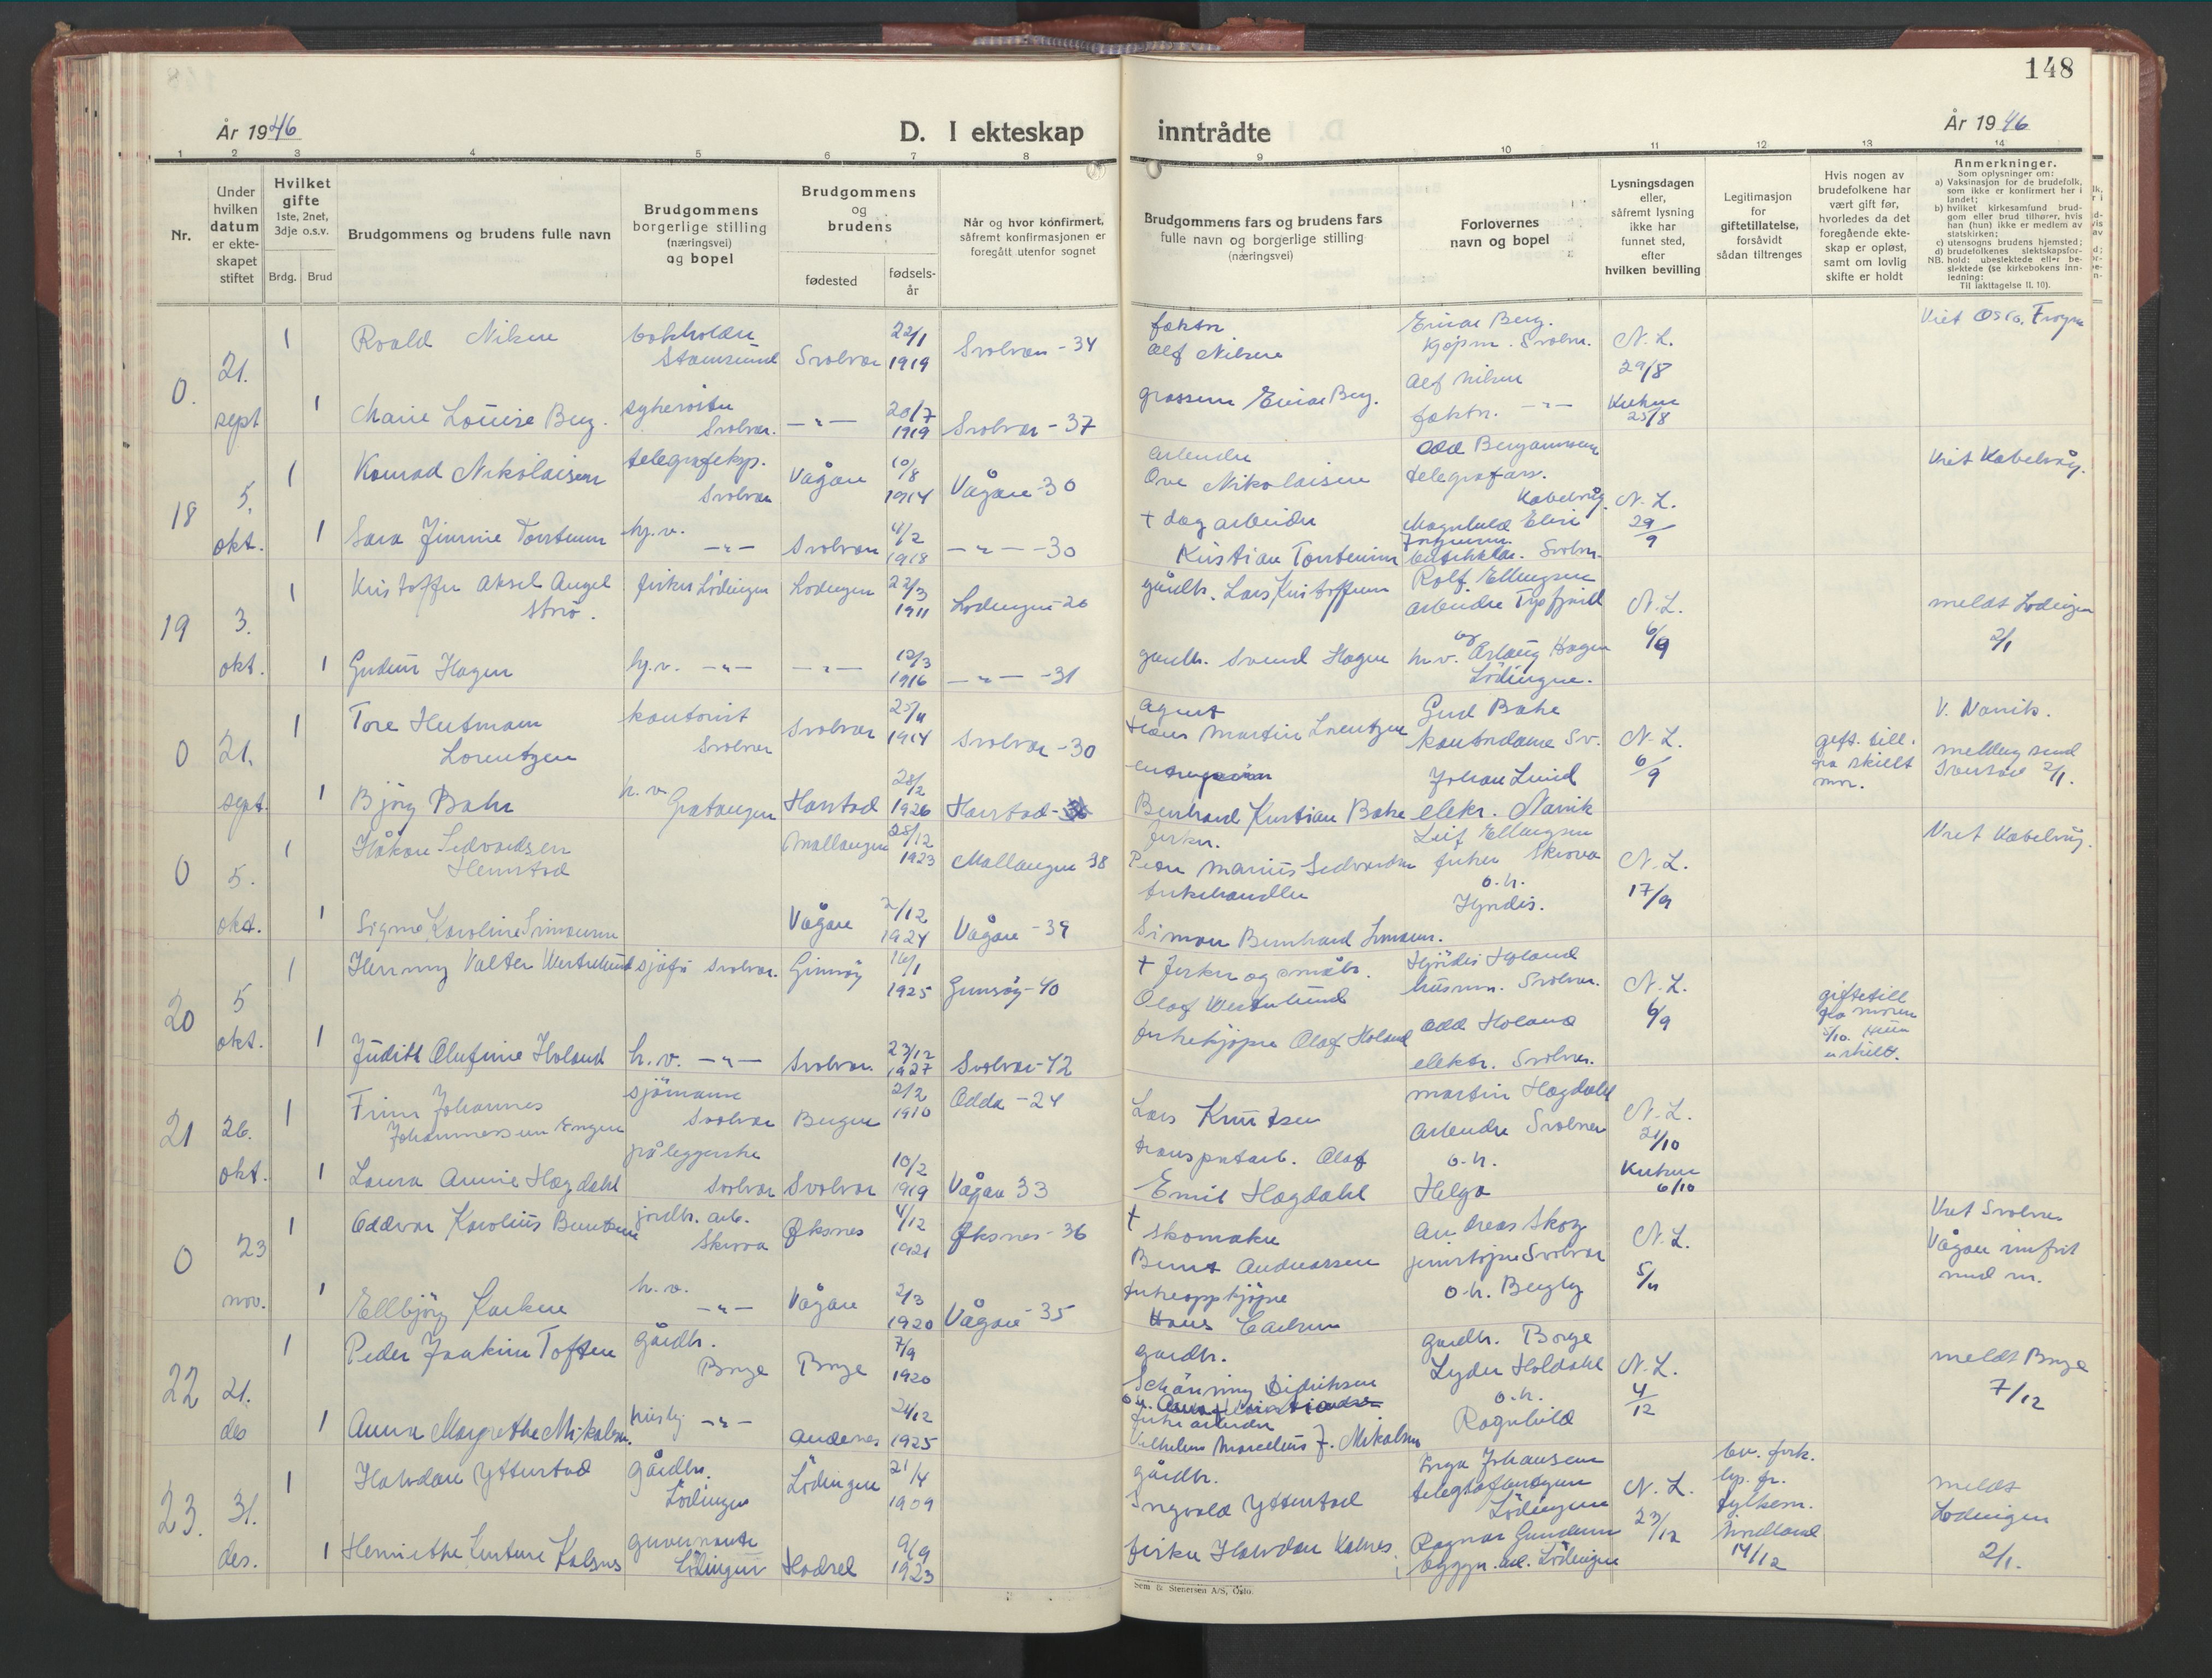 148
År 1946
D. I ekteskap inntrådte
År 1946
1 2 3 4 5 6 7 8 9 10 11 12 13 14
Nr.
Under hvilken datum er ekteskapet stiftet
Hvilket gifte 1ste, 2net, 3dje o.s.v.
Brdg. Brud
Brudgommens og brudens fulle navn
Brudgommens borgerlige stilling (næringsvei) og bopel
Brudgommens og brudens
fødested
fødselsår
Når og hvor konfirmert, såfremt konfirmasjonen er foregått utenfor sognet
Brudgommens fars og brudens fars fulle navn og borgerlige stilling (næringsvei)
Forlovernes navn og bopel
Lysningsdagen eller, såfremt lysning ikke har funnet sted, efter hvilken bevilling
Legitimasjon for giftetillatelse, forsåvidt sådan tiltrenges
Hvis nogen av brudefolkene har vært gift før, hvorledes da det foregående ekteskap er opløst, samt om lovlig skifte er holdt
Anmerkninger.
Som oplysninger om:
a) Vaksinasjon for de brudefolk, som ikke er konfirmert her i landet;
b) hvilket kirkesamfund brudgom eller brud tilhører, hvis han (hun) ikke er medlem av statskirken;
c) utensogns brudens hjemsted;
d) brudefolkenes slektskapsforhold: ubeslektede eller beslektede (se kirkebokens innledning:
NB.
Til iakttagelse II. 10).
0. 21. sept
1 Roald Nilsen bokholder Stamsund Svolvær 22/1 1919 Svolvær - 34
Alf Nilsen
Einar Berg. Kjøpm. Svolv.
N. L. 29/8
Viet Oslo, Frogn
1 Marie Louise Berg. Svolvær. — " — 20/7 1919 Svolvær - 37
grosserer Einar Berg.
Alf Nilsen — " —
25/8
18 5. okt.
1 Konrad Nikolaisen telegrafeksp. Svolvær Vågan 10/8 1914 Vågan - 30
arbeider Ove Nikolaisen
Odd Benjaminsen telegrafass. Kabelvåg.
N. L. 29/9
Viet Kabelvåg.
1 Sara Jimmie Torstensen hj. v. — " — Svolvær 4/2 1918 — " — - 30
+ dagarbeider Kristian Torstensen
Svolv.
19 3. okt.
1 Kristoffer Aksel Angel Strø. fisker Lödingen Lödingen 22/3 1911 Lödingen - 26
gårdbr. Lars Kristoffersen
Rolf Ellingsen arbeider
N. L. 6/9
meldt Lödingen 2/1
1 Gudrun Hagen hj. v. — " — — " — 12/3 1916 — " — - 31
gårdbr. Svend Hagen
og h.v. Aslaug Hagen Lödingen.
0 21. sept.
1 Tore Hertman Lorentzen kontorist Svolvær Svolvær 25/11 1914 Svolvær - 30
agent Hans Martin Lorentzen
Gud Bahr kontordame Sv.
N. L. 6/9
gift. till. fra skilt mor.
V. Narvik. melding send 2/1.
1 Björg Bahr h. v. Gratangen Harstad 28/2 1926 Harstad -
Bernhard Kristian Bahr
Johan Lund elekr. Narvik
0 5. okt.
1 Håkon Sedvardsen Hemstad Mallangen 28/12 1923 Mallangen - 38
fisker. Peder Marius Sedvardsen
Leif Ellingsen fisker Skrova o. h.
N. L. 17/9
Viet Kabelvåg.
1 Signe Karoline Simonsen Vågan 2/12 1924 Vågan - 39
fiskehandler Simon Bernhard Simonsen.
Hjördis.
20 5 okt.
1 Henning Valter Westerlund sjåfør Svolvær. Gimsøy 16/1 1925 Gimsøy - 40
+ fisker og småbr. Olaf Westerlund
Hjördis Holand husmor. Svolvær.
N. L. 6/9
giftetill fra moren 5/10. Hun er skilt.
1 Judith Olufine Holand h. v. — " — Svolvær. 23/12 1927 Svolvær - 42
fiskekjøper Olaf Holand
Odd Holand elektr. Svolvær.
21 26. okt.
1 Finn Johannes Johannessen Engen sjömann Svolvær Bergen 2/2 1910 Odda - 24
Lars Knutsen
Martin Hagdahl arbeider Svolvær
N. L. 21/10
1 Laura Annie Hagdahl påleggerske Svolvær Svolvær 10/2 1919 Vågan 33
transportarb. Olaf Emil Hagdahl
o. h. Helga
6/10
0 23 nov.
1 Oddvar Karolius Berntsen jordbr. arb. Skrova Øksnes 4/12 1921 Øksnes - 36
+ Skomaker Bernt Andreassen
Andreas Skog Svolvær
N. L. 5/11
Viet Svolvær
1 Ellbjörg Karlsen h. v. — " — Vågan 2/3 1920 Vågan - 35
fiskeoppkjøper Hans Carlsen
o. h. Bergly
22 21. des
1 Peder Joakim Toften gårdbr. Borge Borge 7/9 1920
gårdbr. Schönning Didriksen
gårdbr. Borge Lyder Holdahl
N. L. 4/12
meldt Borge 7/12
1 Anna Margrethe Mikalsen. husbj — " — Andenes 24/12 1925
fiskearbeider Vilhelm Marcelius J. Mikalsen
o. h. Ragnhild
23. 31. des.
1 Halvdan Ytterstad gårdbr. Lödingen Lödingen 21/4 1909
gårdbr. Ingvald Ytterstad
Johansen Lödingen
N. L. 23/12
bev. fork. lys. fr. fylkesm. Nordland 14/12
meldt Lödingen 2/1.
1 Henriethe Kalsnes guvernante Lödingen Hadsel 9/9 1923
fisker Halvdan Kalsnes
Ragnar Gundersen Lödingen
Sem & Stenersen A/S, Oslo.